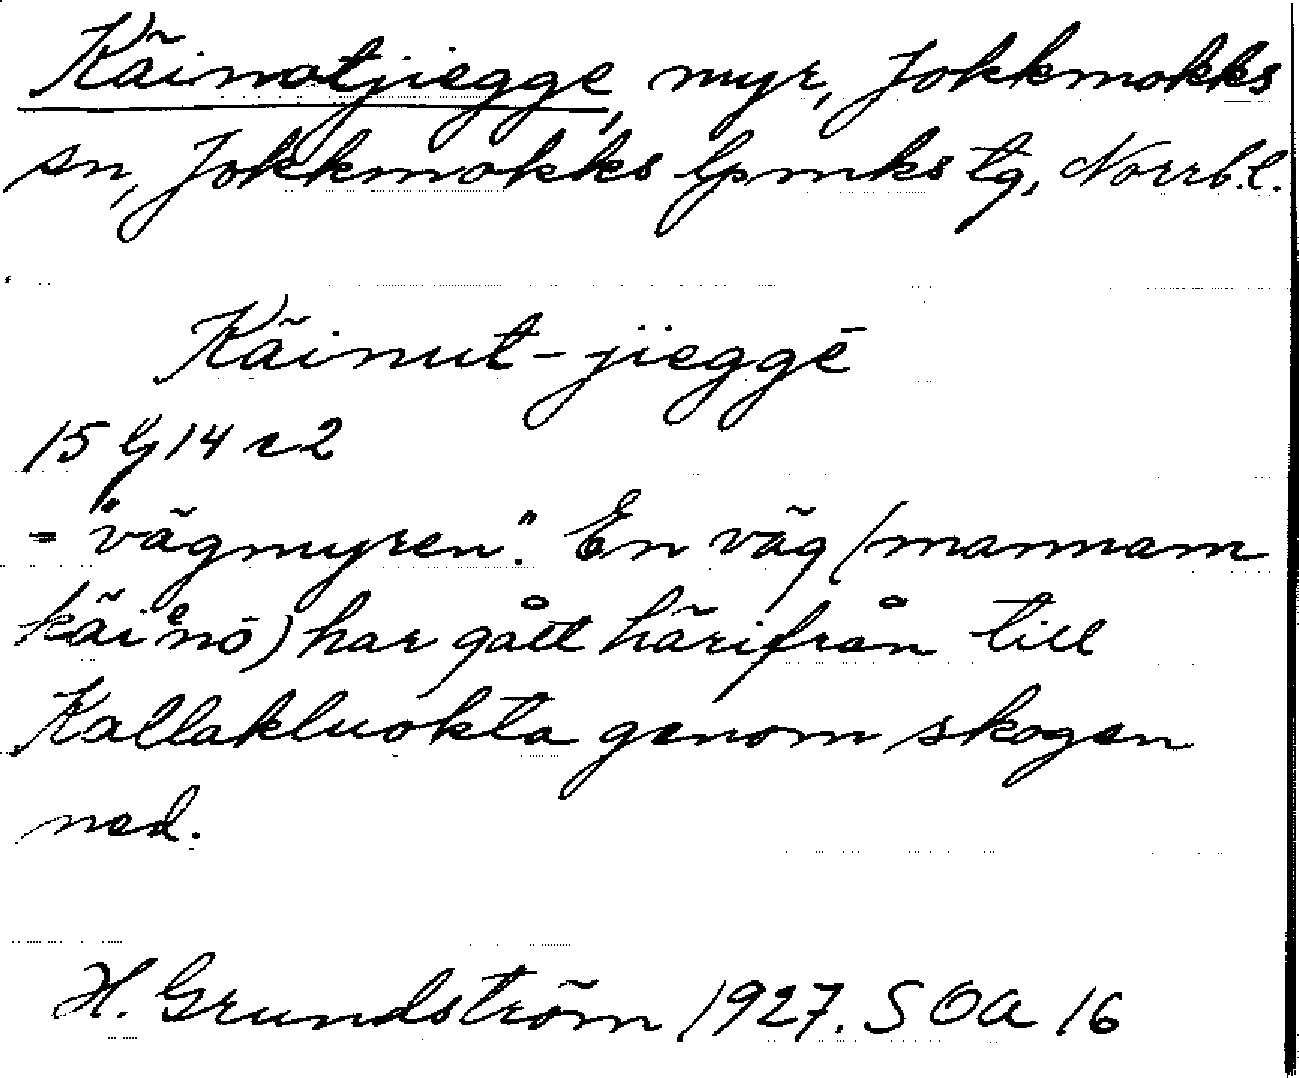 Käinotjiegge, myr, Jokkmokks
sn, Jokkmokks lpmks tg, Norrb.l.
Käinut-jieggē
15 G 14 c 2
= "vägmyren". En väg (mannam
käi ͤnō) har gått härifrån till
Kallakluokta genom skogen
ned.
H. Grundström 1927. SOA 16